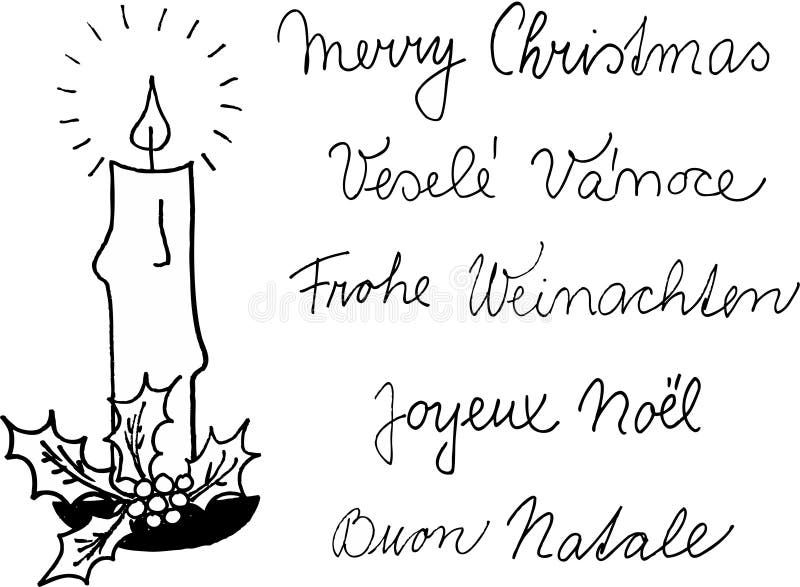 Merry Christmas
Veselé Vánoce
Frohe Weinachten
Joyeux Noël
Buon Natale